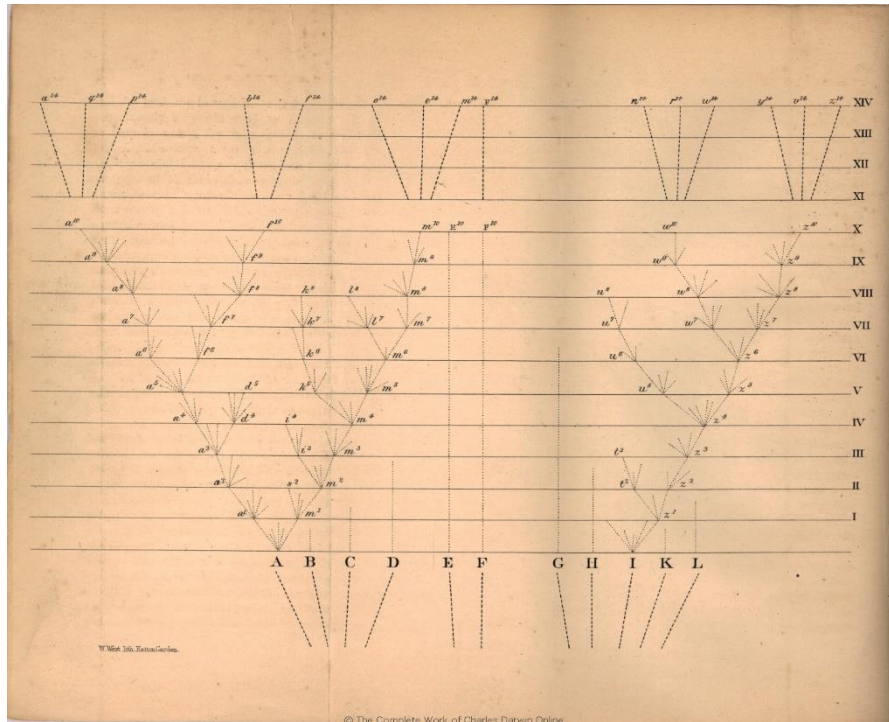 a¹⁴ q¹⁴ p¹⁴ b¹⁴ f¹⁴ o¹⁴ e¹⁴ m¹⁴ F¹⁴ n¹⁴ r¹⁴ w¹⁴ y¹⁴ v¹⁴ z¹⁴ XIV
XIII
XII
XI
a¹⁰ f¹⁰ m¹⁰ E¹⁰ F¹⁰ w¹⁰ z¹⁰ X
a⁹ f⁹ m⁹ w⁹ z⁹ IX
a⁸ f⁸ k⁸ l⁸ m⁸ u⁸ w⁸ z⁸ VIII
a⁷ f⁷ k⁷ l⁷ m⁷ u⁷ w⁷ z⁷ VII
a⁶ f⁶ k⁶ m⁶ u⁶ z⁶ VI
a⁵ d⁵ k⁵ m⁵ u⁵ z⁵ V
a⁴ d⁴ i⁴ m⁴ z⁴ IV
a³ i³ m³ t³ z³ III
a² s² m² t² z² II
a¹ m¹ z¹ I
A B C D E F G H I K L
W. West lith. Hatton Garden.
© The Complete Work of Charles Darwin Online